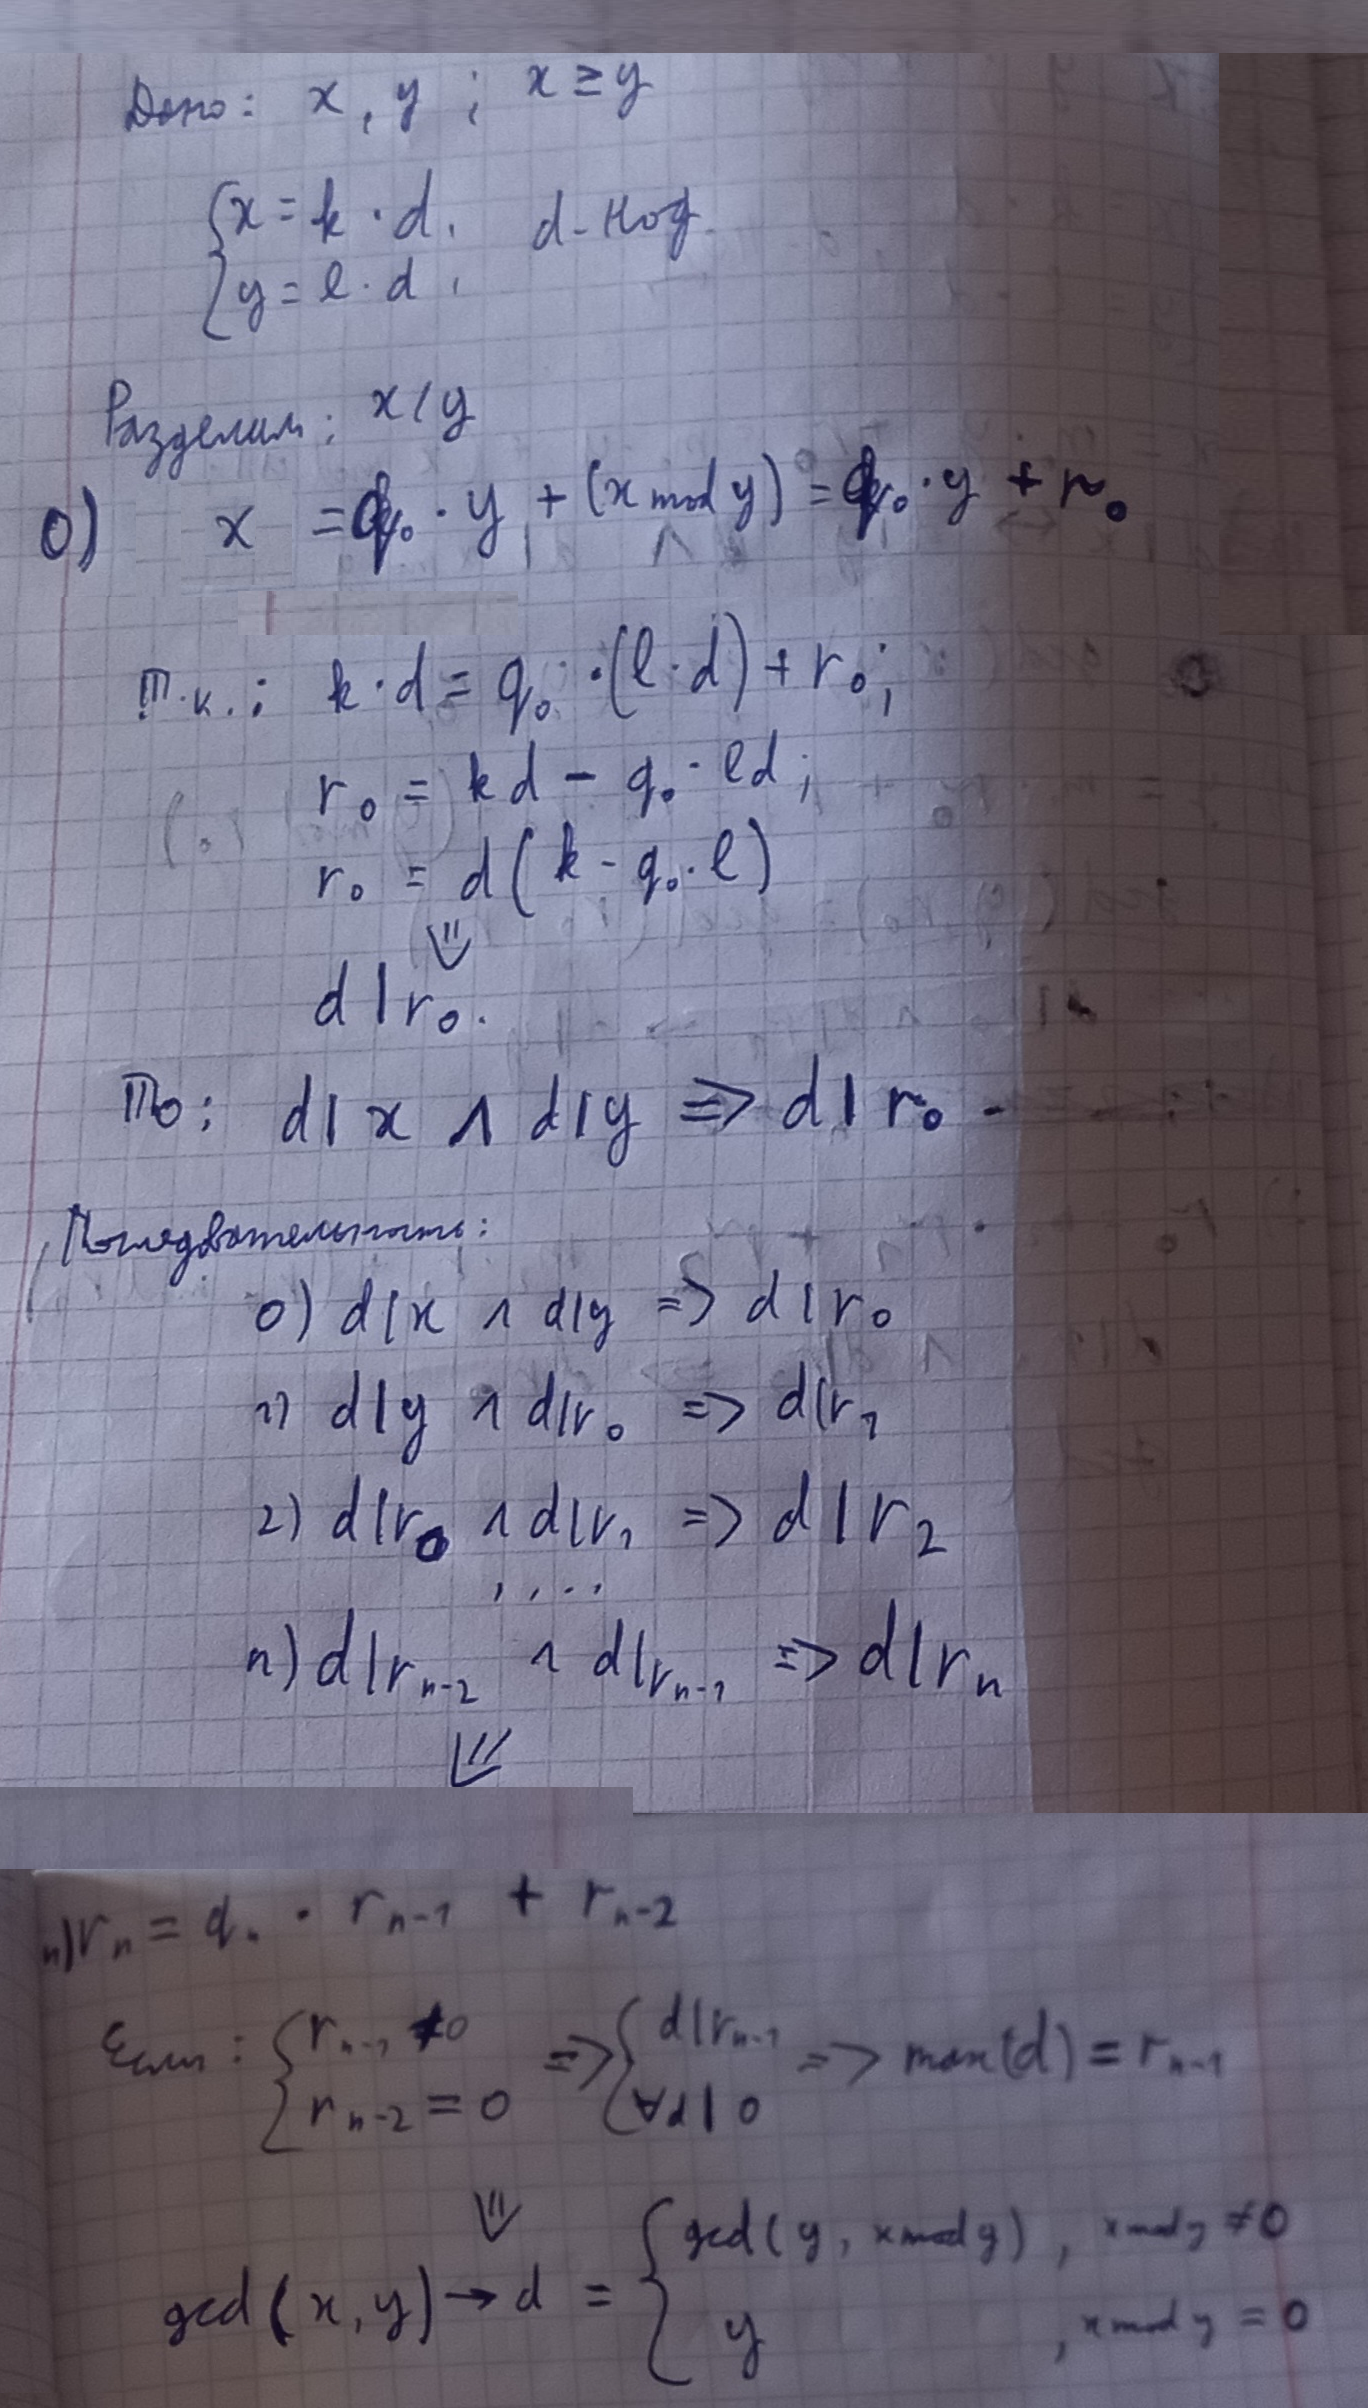 Дано: x, y ; x ≥ y
{ x = k · d, d - Нод.
{ y = l · d,
Разделим: x / y
0) x = q₀ · y + (x mod y) = q₀ · y + r₀
Т.к.: k · d = q₀ · (l · d) + r₀;
r₀ = kd - q₀ · ld;
r₀ = d(k - q₀ · l)
⇓
d | r₀.
То: d | x ∧ d | y => d | r₀
Последовательность:
0) d | x ∧ d | y => d | r₀
1) d | y ∧ d | r₀ => d | r₁
2) d | r₀ ∧ d | r₁ => d | r₂
....
n) d | rₙ₋₂ ∧ d | rₙ₋₁ => d | rₙ
⇓
n) rₙ = qₙ · rₙ₋₁ + rₙ₋₂
Если: { rₙ₋₁ ≠ 0 => { d | rₙ₋₁ => max(d) = rₙ₋₁
{ rₙ₋₂ = 0 { ∀d | 0
⇓
gcd(x, y) → d = { gcd(y, x mod y), x mod y ≠ 0
{ y , x mod y = 0